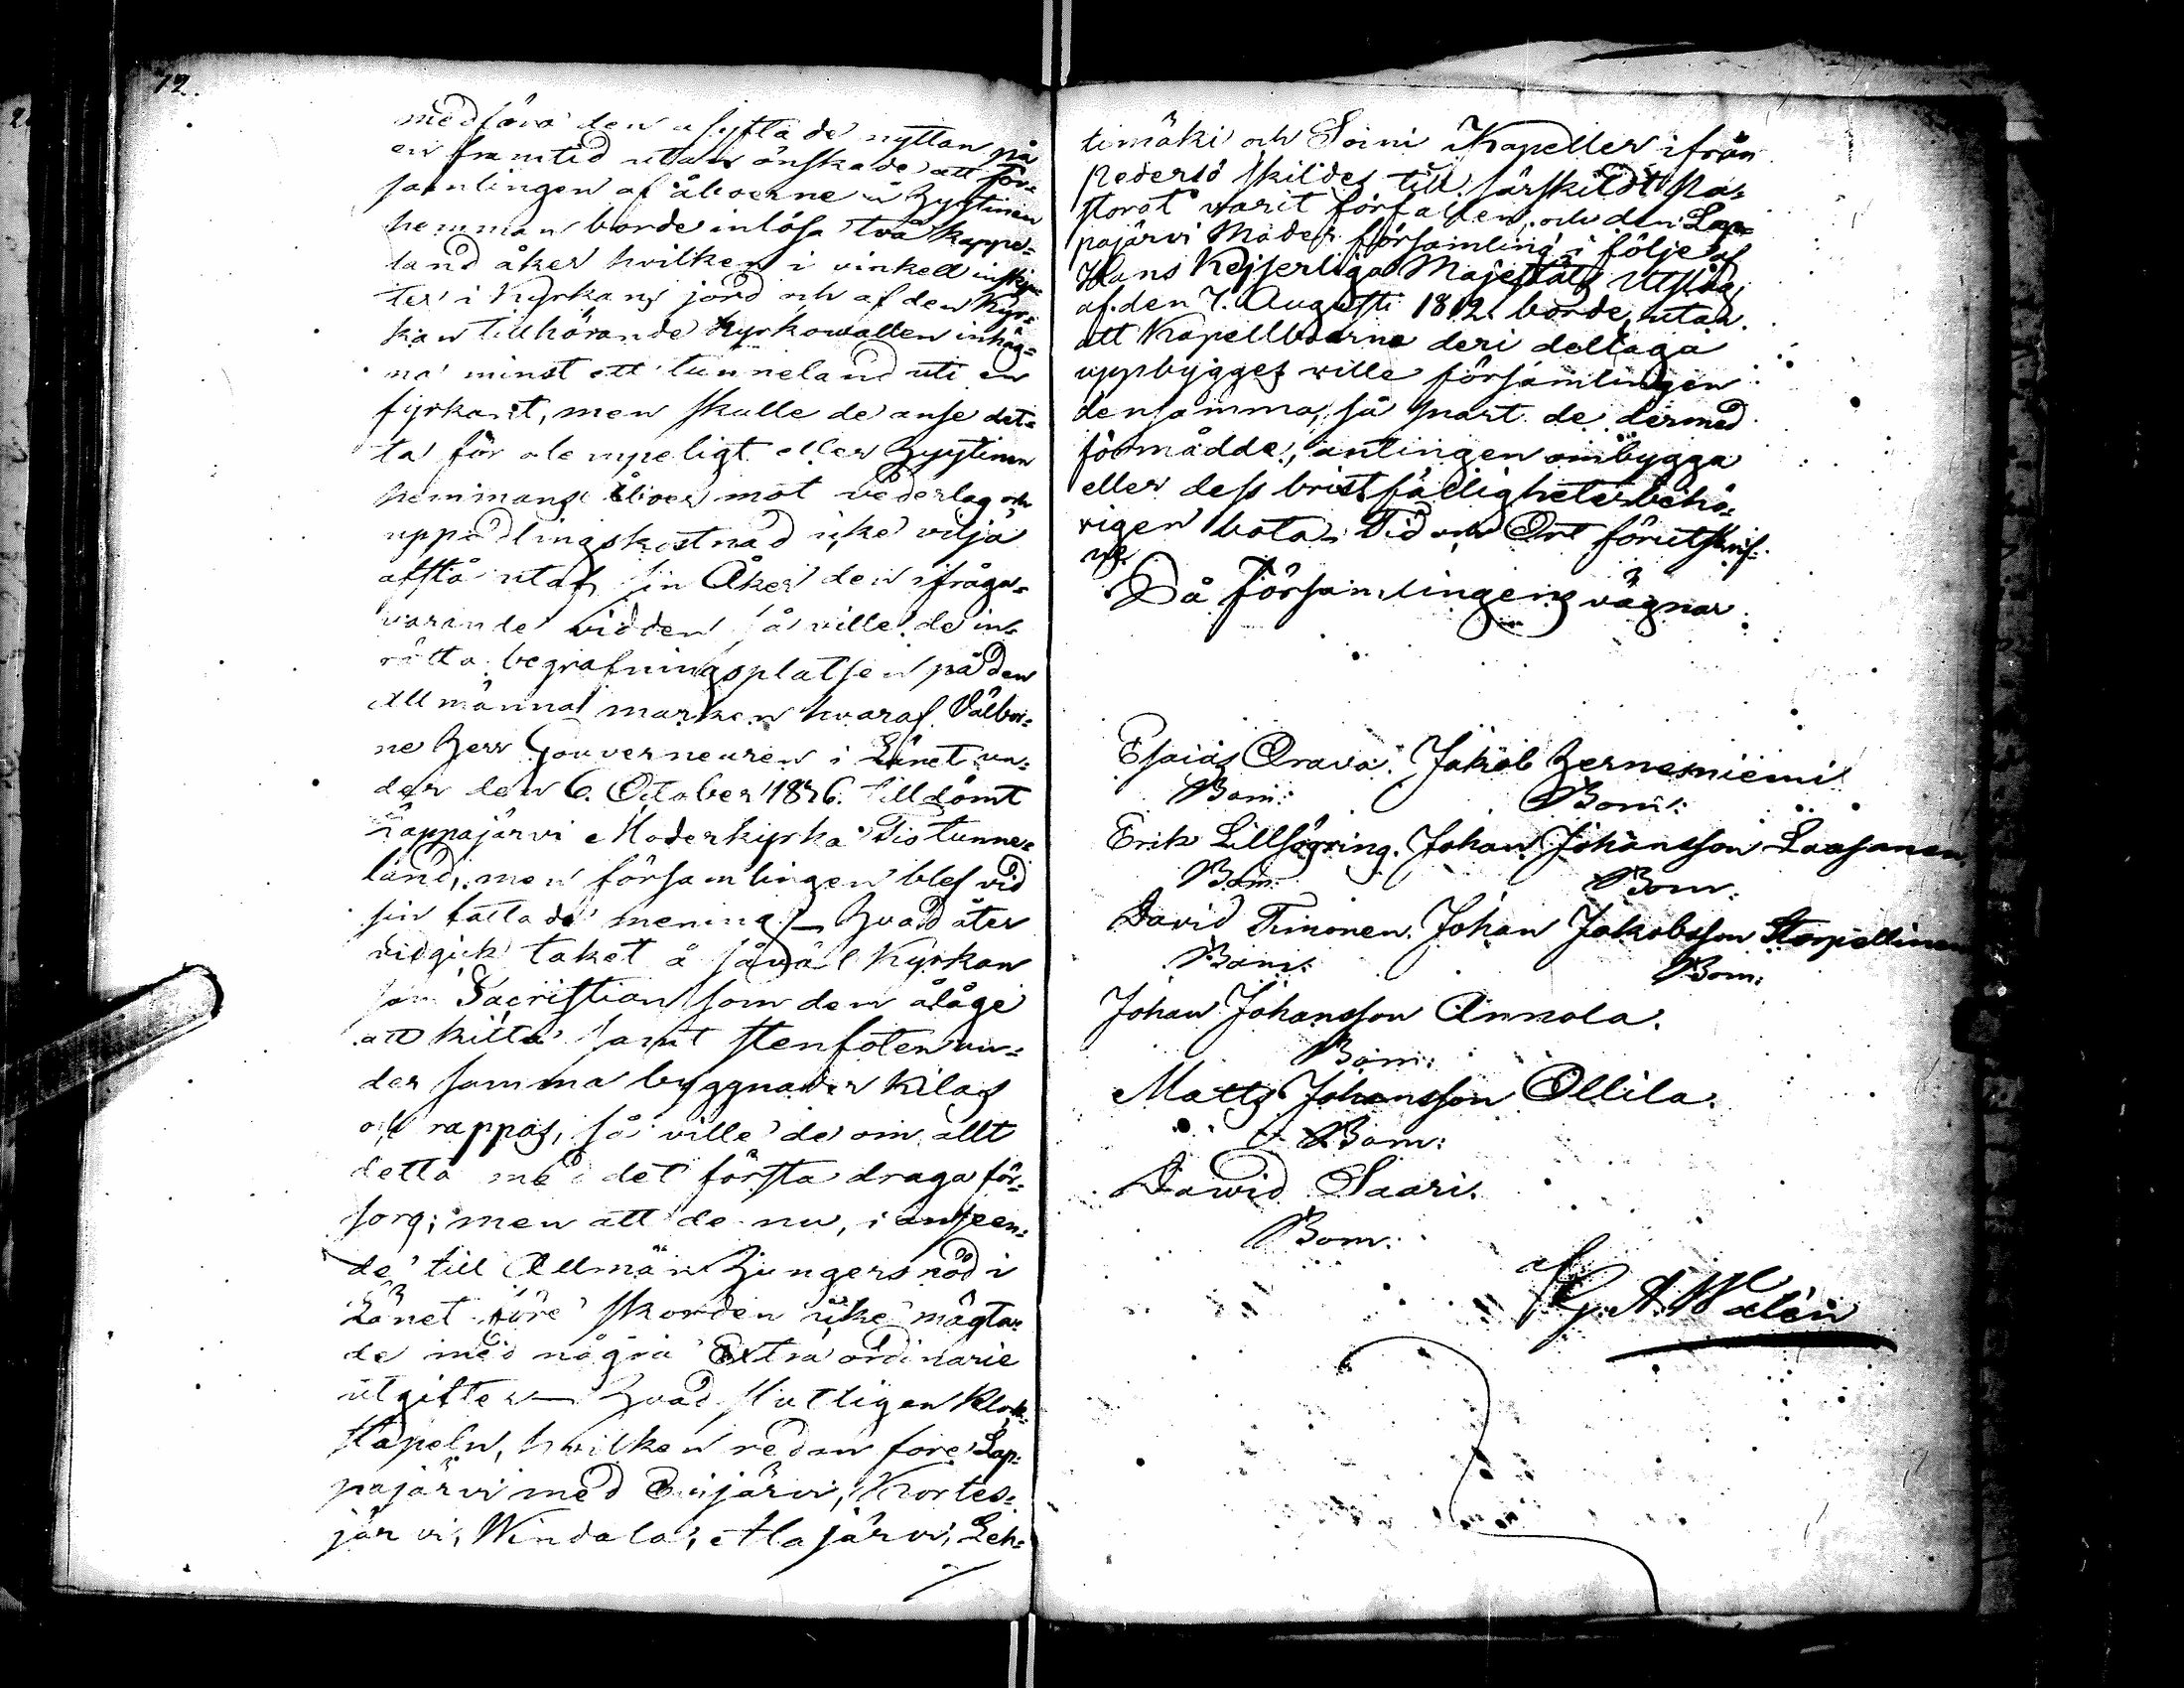 72.
medföra den asyftade nyttan på
en framtid utan önskade att för=
samlingen af åboerne å Hyytinen
hemman borde inlösa två kappe=
land åker hvilken i vinkell inskju=
ter i Kyrkans jord och af den Kyr=
kan tillhörande Kyrkowallen inhäg=
na minst ett tunneland uti en
fyrkant, men skulle de anse det=
ta för olempeligt eller Hyytinen
hemmans Åboer mot vederlag och
uppodlingskostnad icke vilja
afstå utaf sin Åker den ifråga=
varande vidden så ville de in=
rätta begrafningsplatsen på den
Allmänna marken hvaraf Välbor=
ne Herr Gouverneuren i Länet un=
der den 6. October 1836. tilldömt
Lappajärvi Moderkyrka Tio tunne=
land, men församlingen blef vid
sin fattade mening. — Hvad åter
vidgick taket å såväl Kyrkan
som Sacristian som den ålåge
att kitta samt stenfoten un=
der samma byggnader kilas
och rappas, så ville de om allt
detta med det första draga för=
sorg; men att de nu, i anseen=
de till Allmän Hungersnöd i
Länet före skörden icke mägta=
de med några Extra ordinarie
utgifter — Hvad slutligen Klock=
stapeln, hvilken redan före Lap=
pajärvi med Evijärvi, Kortes=
järvi, Windala, Alajärvi, Leh=
timäki och Soini Kapeller ifrån
Pedersö skildes till särskildt Pa=
storat varit förfallen, och den Lap=
pajärvi Moder församling i följe af
Hans Kejserliga Majestäts Utslag
af den 7. Augusti 1812. borde, utan
att Kapellboerne deri deltaga
uppbygges ville församlingen
densamma, så snart de dermed
förmådde, antingen ombygga
eller dess bristfälligheter behö=
rigen bota. Tid och Ort förutskrif=
ne
På Församlingens vägnar
Esaias Orava. Jakob Hernesniemi
Bom: Bom:
Erik Lillsögring. Johan Johansson Laasanen.
Bom: Bom:
David Timonen. Johan Jakobsson Sarpellinen
Bom: Bom:
Johan Johansson Annala.
Bom:
Matts Johansson Ollila.
Bom:
Dawid Saari.
Bom:
af
G. A. Walén